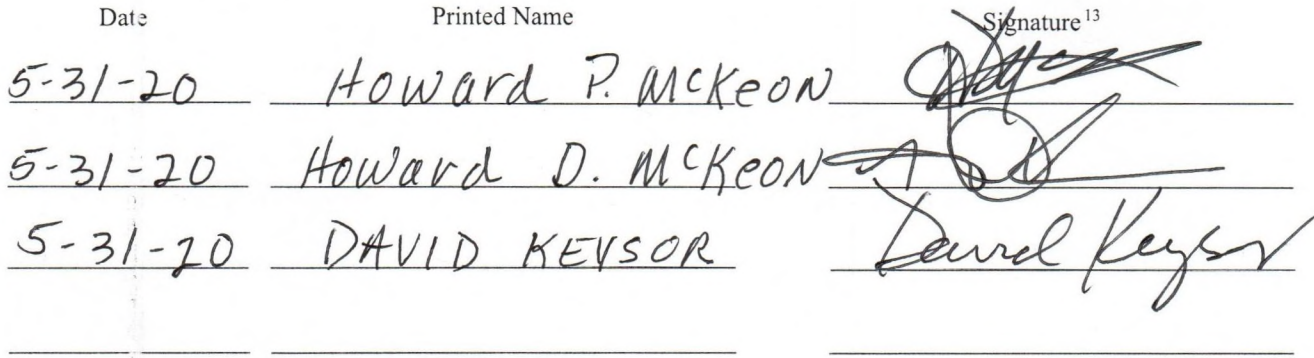 Date Printed Name Signature 13
5-31-20 Howard P. McKeon
5-31-20 Howard D. McKeon
5-31-20 DAVID KEYSOR David Keysor